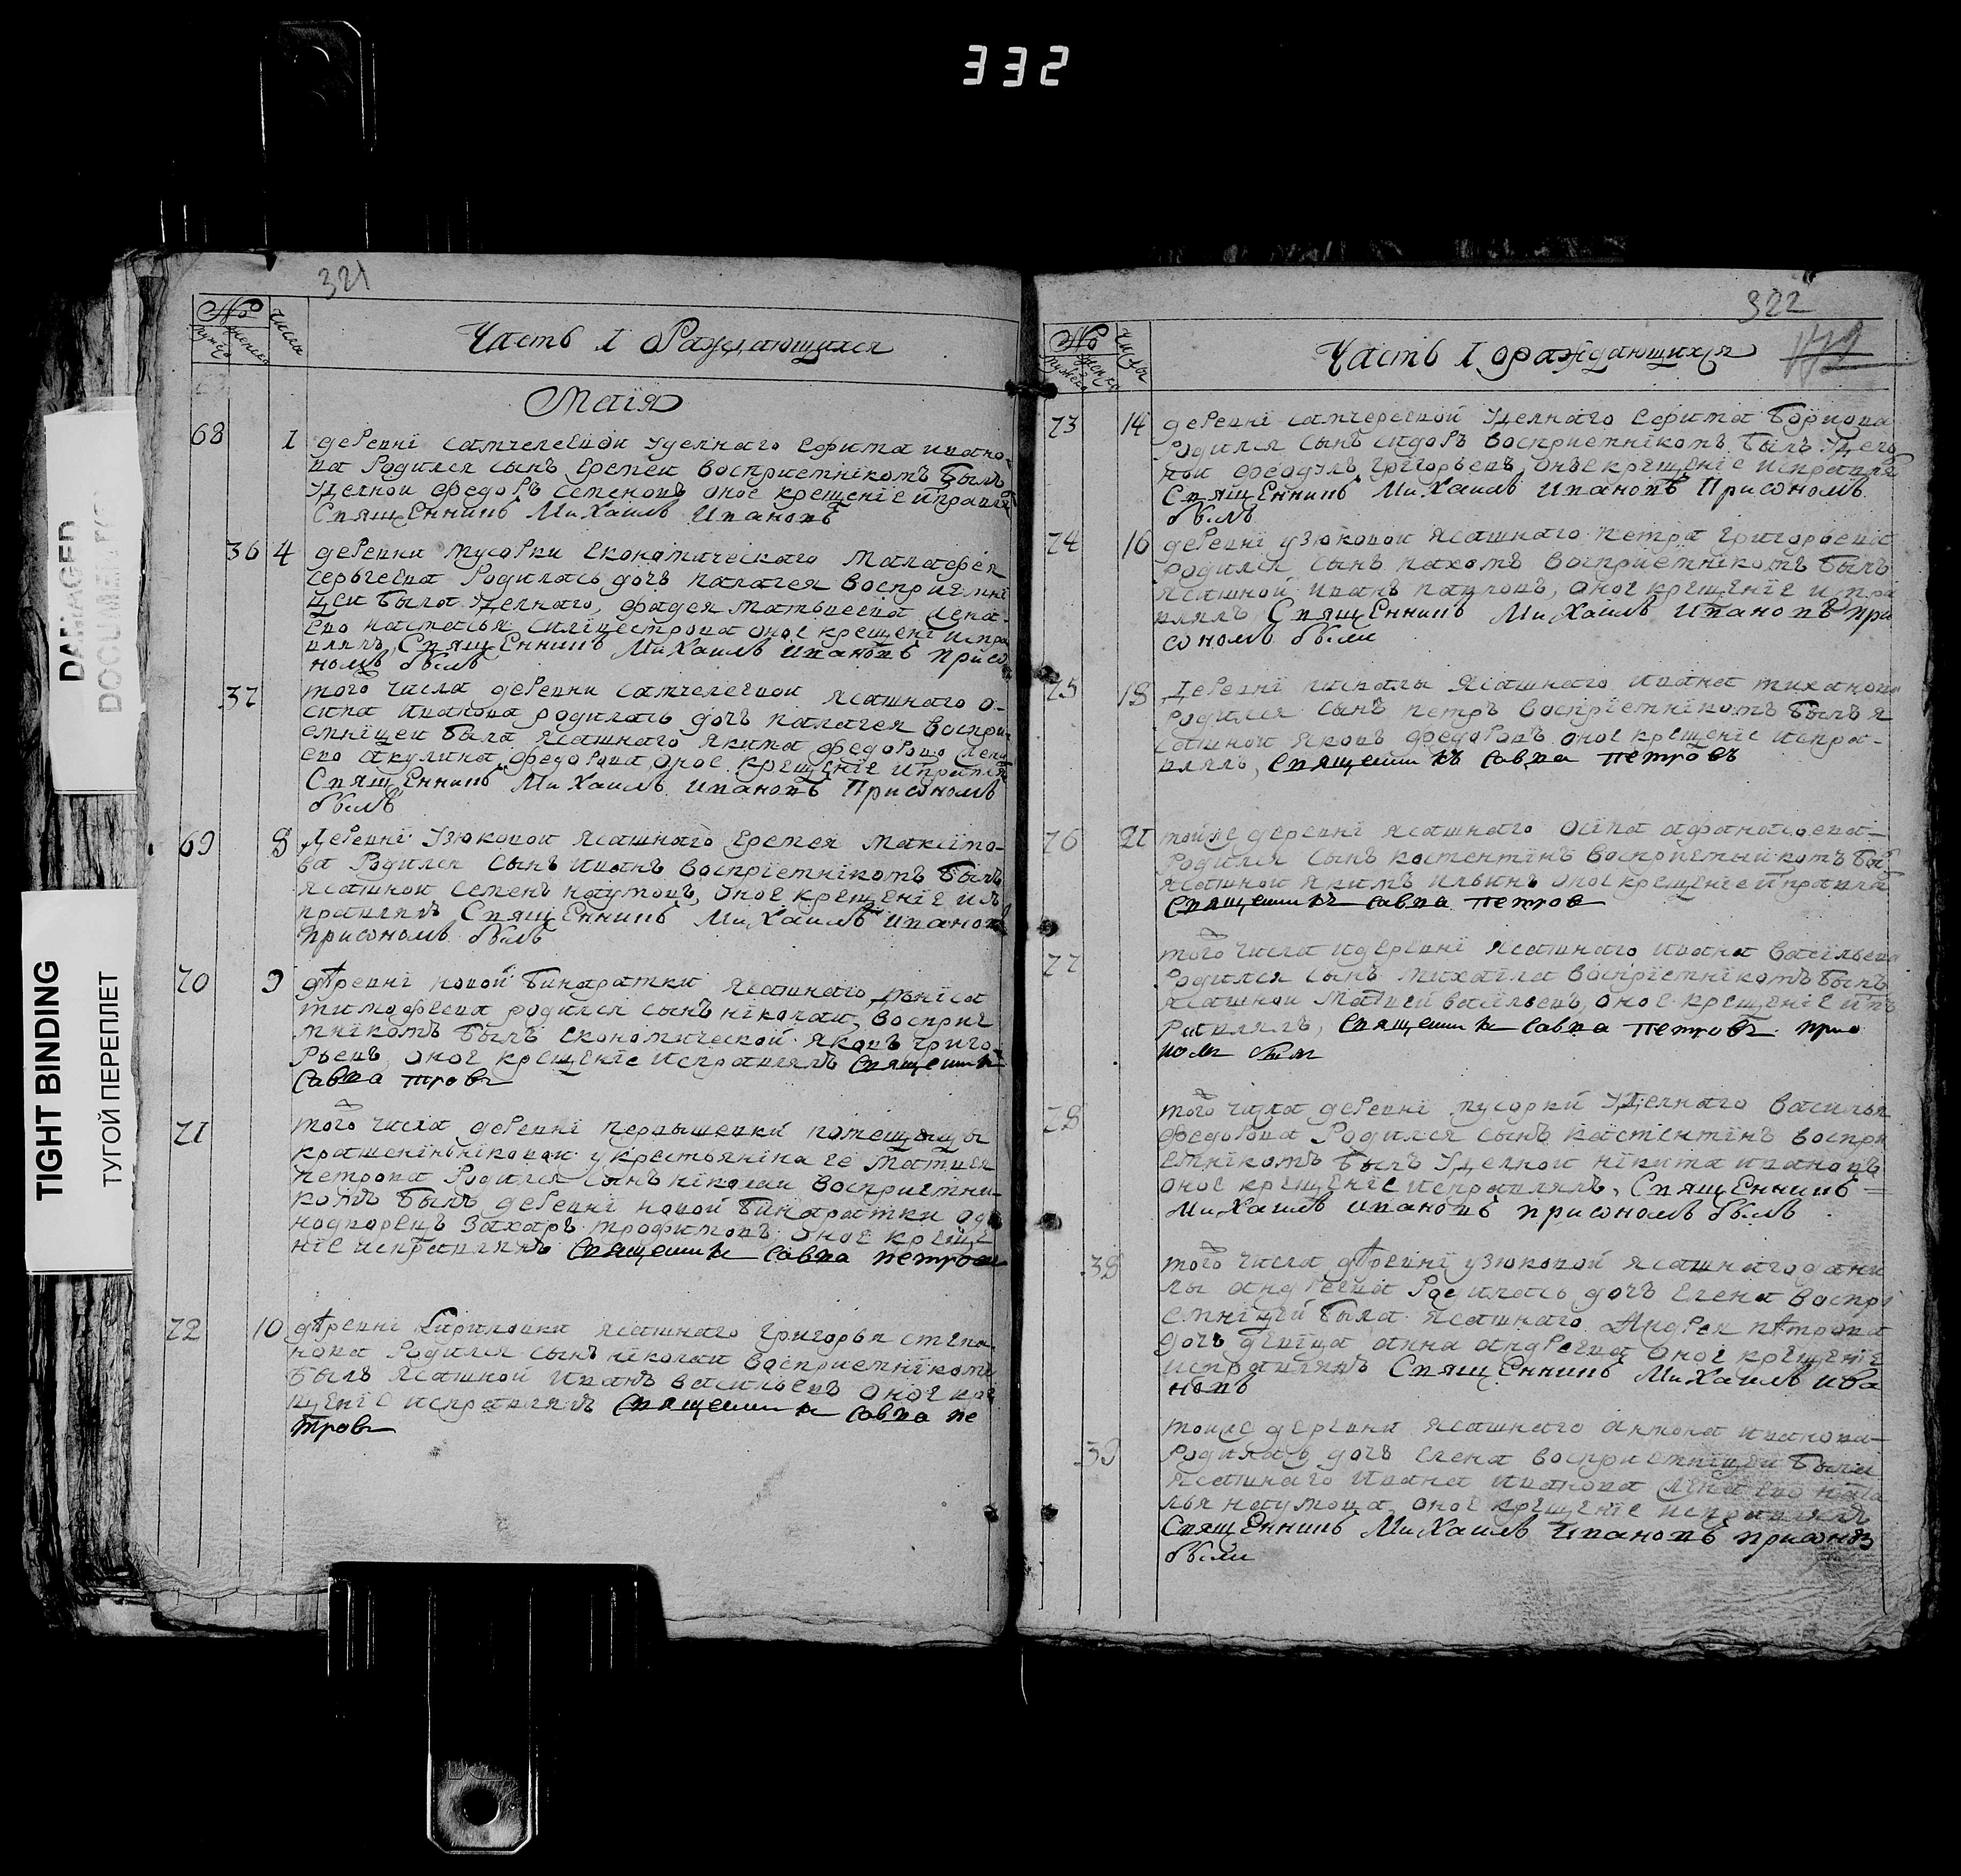 332
DAMAGED
DOCUMENT
TIGHT BINDING
ТУГОЙ ПЕРЕПЛЕТ
321
№ числа
мужеска женска
Часть I О Раждающихся
Маія
68 1 деревни Удельнаго Ефима Ивано-
ва Родился сынъ Еремей восприемнїкомъ былъ
Удельной Федоръ Семеновъ оное крещенїе исправлялъ
Священникъ Михаилъ Ивановъ
36 4 деревни Мусорки Економического Малафея
Сергеева Родилась дочь Палагея восприемнї
цеи была Уделнаго, Фадея Матвеева жена
ево Настасья Силївестрова оное крещенї испра
влялъ, Священникъ Михаилъ Ивановъ Присо
номъ былъ
37 того числа деревни Ясашнаго О-
сипа Иванова родилась дочь Палагея воспри
емнїцеи была Ясашнаго Якима Федорова жена
ево Акулина Федорова, оное крещенїе исправля
Священникъ Михаилъ Ивановъ Присономъ
былъ
69 8 Деревнї Узюковой Ясашнаго Еремея Максїмо-
ва Родился сынъ Иванъ восприемнїкомъ былъ
Ясашной Семенъ Наумовъ, оное крещенїе ис
правлялъ Священникъ Михаилъ Ивановъ
присономъ былъ
70 9 деревнї новой Бинарадки Ясашнаго Дениса
Тимофеева родился сынъ нїколаи, воспрїе
мнїкомъ былъ Економической Яковъ Григо
рьевъ, оное крещенїе исправлялъ Священникъ
Савва Тровъ
71 того числа деревнї помещицы
у крестьянїна ее Матвея
Петрова Родился сынъ нїколаи восприемни-
комъ былъ деревнї новой Бинарадки од
нодворецъ Захаръ Трофимовъ, оное креще
нїе исправлялъ Священникъ Савва Петровъ
72 10 деревнї Кириловки Ясашнаго Григорья Степа-
нова Родился сынъ нїколаи восприемнїкомъ
былъ Ясашной Иванъ Васильевъ оное кре
щенїе исправлялъ Священникъ Савва Пе
тровъ
322
№ числы
мужеска женска
Часть I о раждающихся
73 14 деревнї Уделнаго Ефима
Родился сынъ Сидоръ восприемнїкомъ былъ Удел
ной Феодулъ Григорьевъ, оное крещенїе исправля
Священникъ Михаилъ Ивановъ Присономъ
былъ
74 16 деревнї Узюковой Ясашнаго Петра Григорьева
родился сынъ Пахомъ восприемнїкомъ былъ
Ясашной Иванъ Павловъ, оное крещенїе испра
влялъ Священникъ Михаилъ Ивановъ при
сономъ были
75 18 Деревнї Ясашнаго Ивана Тиханова
Родился сынъ Петръ воспрїемнїкомъ былъ я
сашной Яковъ Федоровъ оное крещенїе испра-
влялъ, Священникъ Савва Петровъ
76 21 тойже деревнї Ясашнаго Осїпа Афанасьева-
Родился сынъ Костентїнъ Бы
Ясашной Якимъ Ильинъ оное крещенїе исправля
Священникъ Савва Петров
77 того числа и деревнї Ясашнаго Ивана Васїльева
Родился сынъ Михаїла воспрїемнїкомъ былъ
Ясашной Матвей Васїльевъ, оное крещенїе ис
равлялъ, Священникъ Савва Петровъ присо
номъ был
78 того числа деревнї Мусорки Уделнаго Василья
Федорова Родился сынъ Кастентїнъ воспри
емнїкомъ былъ Уделной нїкита Ивановъ
оное крещенїе исправлялъ, Священникъ =
Михаилъ Ивановъ присономъ былъ
38 того числа деревнї Узюковой Ясашнаго Дани
лы Андреева Родилась дочь Елена воспрї
емнїцей была Ясашнаго Андрея Петрова
дочь девїца Анна Андреева оное крещенїе
исправлялъ Священникъ Михаилъ Ива
новъ
39 тойже деревни Ясашнаго Антона Иванова-
Родилась дочь Елена восприемнїцеи была
Ясашнаго Ивана Иванова жена ево Ната
лья Наумова, оное крещенїе исправлялъ
Священникъ Михаилъ Ивановъ присонъ
были